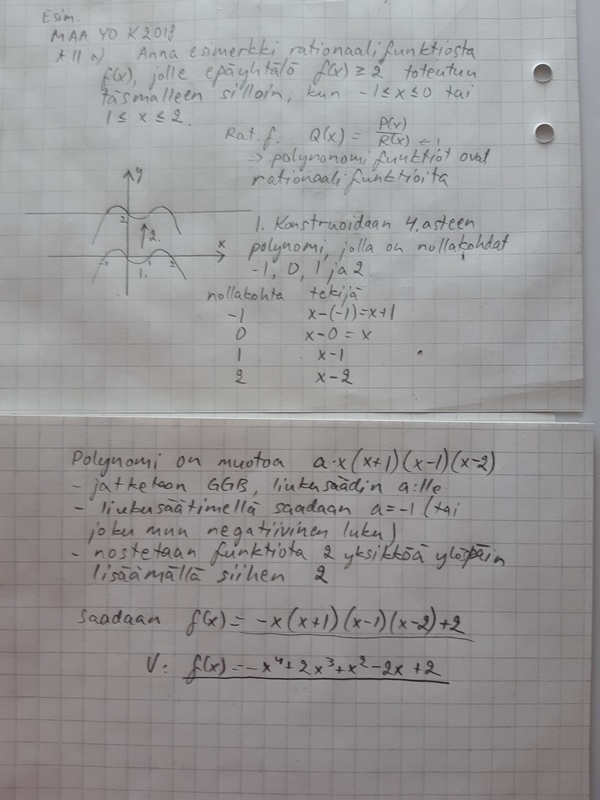 Esim.
MAA YO K 2019
t 11 a) Anna esimerkki rationaalifunktiosta
f(x), jolle epäyhtälö f(x) ≥ 2 toteutuu
täsmälleen silloin, kun -1 ≤ x ≤ 0 tai
1 ≤ x ≤ 2.
Rat. f. Q(x) = P(x)/R(x) ← 1
→ polynonomi funktiot ovat
rationaalifunktioita
y
2
2.
x
-1 1 2
1.
1. Konstruoidaan 4. asteen
polynomi, jolla on nollakohdat
-1, 0, 1 ja 2.
nollakohta tekijä
-1 x-(-1)=x+1
0 x-0 = x
1 x-1
2 x-2
Polynomi on muotoa a·x(x+1)(x-1)(x-2)
- jatketaan GGB, liukusäädin a:lle
- liukusäätimellä saadaan a=-1 (tai
joku muu negatiivinen luku)
- nostetaan funktiota 2 yksikköä ylöspäin
lisäämällä siihen 2
Saadaan f(x) = -x(x+1)(x-1)(x-2)+2
V: f(x) = -x⁴+2x³+x²-2x+2